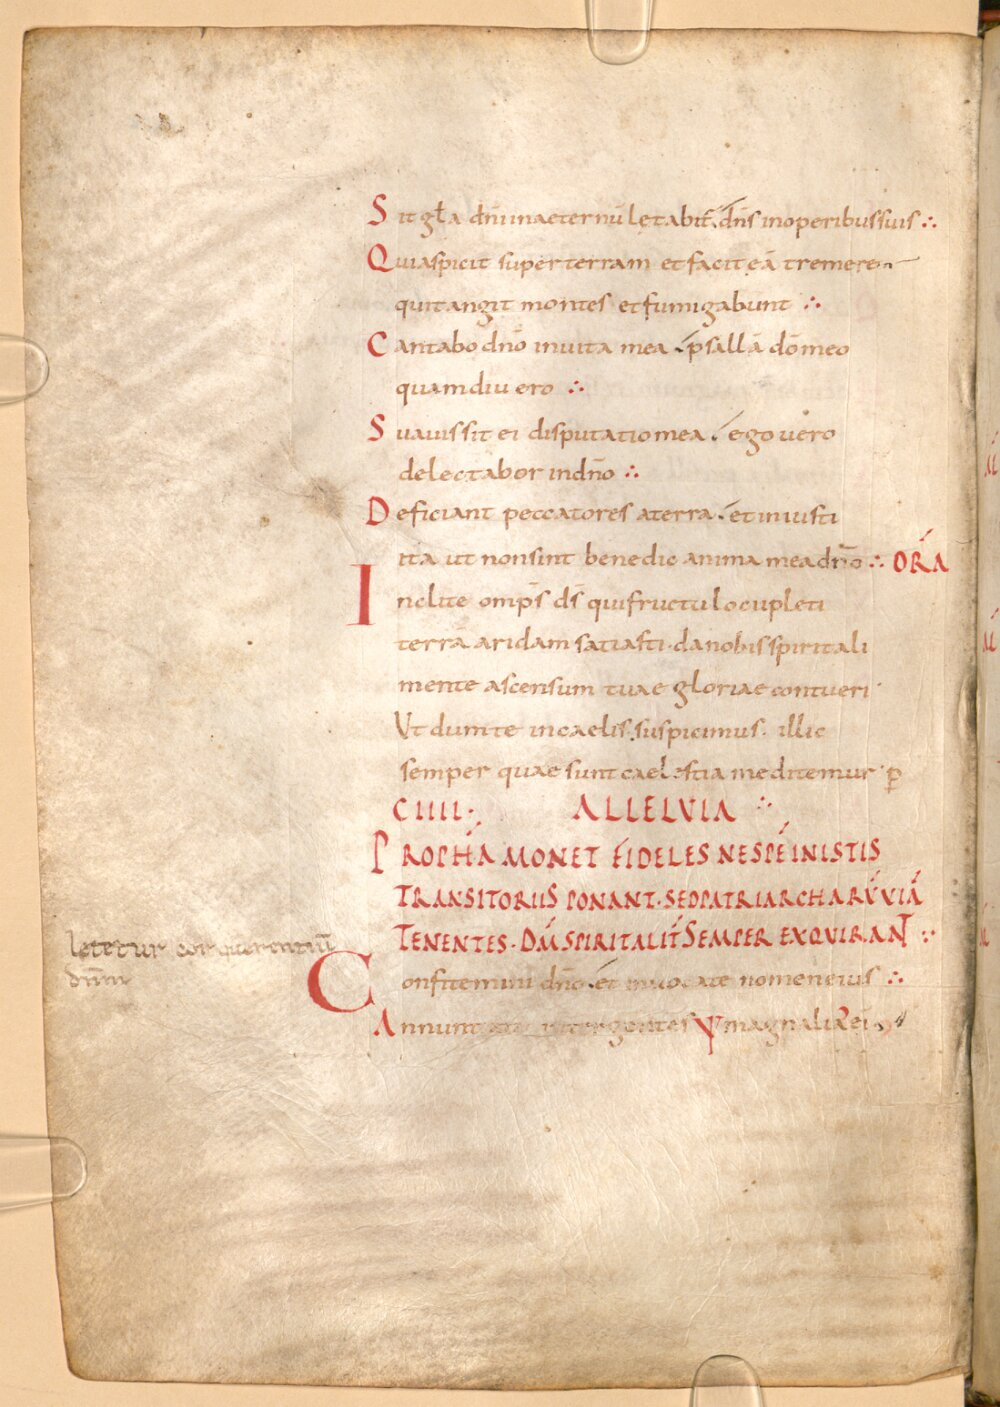 Sit gła dñi inaeternū letabit̃ dñs inoperibus suis
Qui aspicit super terram et facit eā tremere
qui tangit montes et fumigabunt
Cantabo dño in uita mea psallā dō meo
quamdiu ero
Suauis sit ei disputatio mea ego uero
delectabor in dño
Deficiant peccatores a terra et iniusti
ita ut non sint benedic anima mea dño ORA
Inclite omps ds qui fructu locupleti
terrā aridam satiasti da nobis spiritali
mente ascensum tuae gloriae contueri
Ut dum te in caelis suspicimus illic
semper quae sunt caelestia meditemur p
CIIII ALLELVIA
PROPHA MONET FIDELES NE SPE IN ISTIS
TRANSITORIIS PONANT SED PATRIARCHARV VIA
TENENTES DM SPIRITALIT SEMPER EXQVIRANT
letetur cor querentiū
dñm
Confitemini dño et inuocate nomen eius
Annuntiate inter gentes magnalia ei